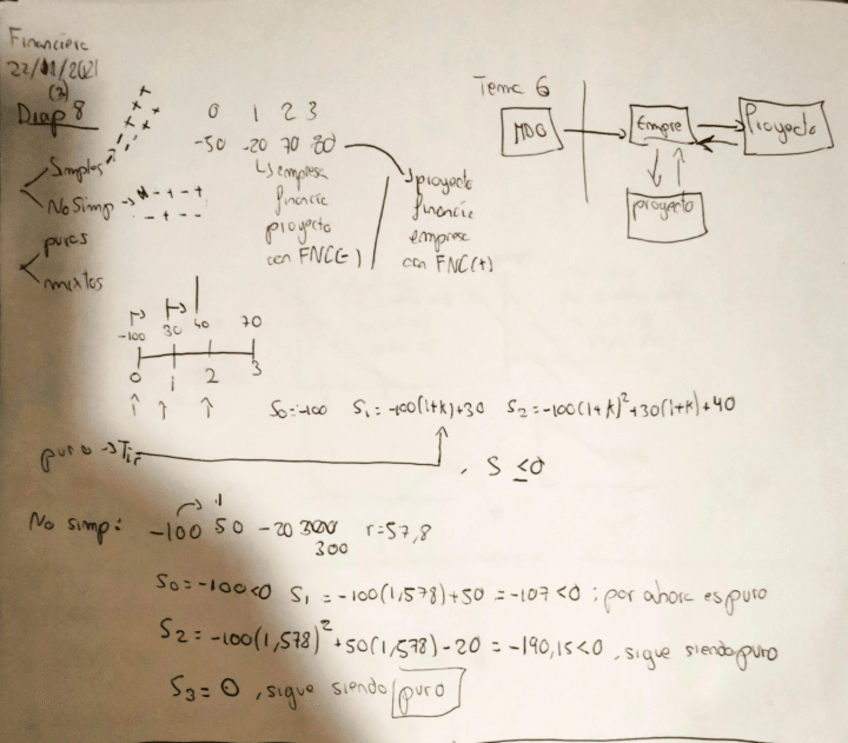 Financiera
22/11/2021
(2)
Diap 8
Simples
No Simp → - + - +
- + - -
puros
mixtos
0 1 2 3
-50 -20 70 80
↳ empresa
financia
proyecto
con FNC(-)
↳ proyecto
financia
empresa
con FNC(+)
Tema 6
MDO → Empre → Proyecto
proyecto
-100 30 40 70
0 1 2 3
S0=-100 S1=-100(1+k)+30 S2=-100(1+k)²+30(1+k)+40
puro → Tir
, S ≤0
No simp: -100 50 -20 300 r=57,8
300
S0=-100<0 S1=-100(1,578)+50=-107<0; por ahora es puro
S2=-100(1,578)²+50(1,578)-20=-190,15<0, sigue siendo puro
S3=0, sigue siendo puro